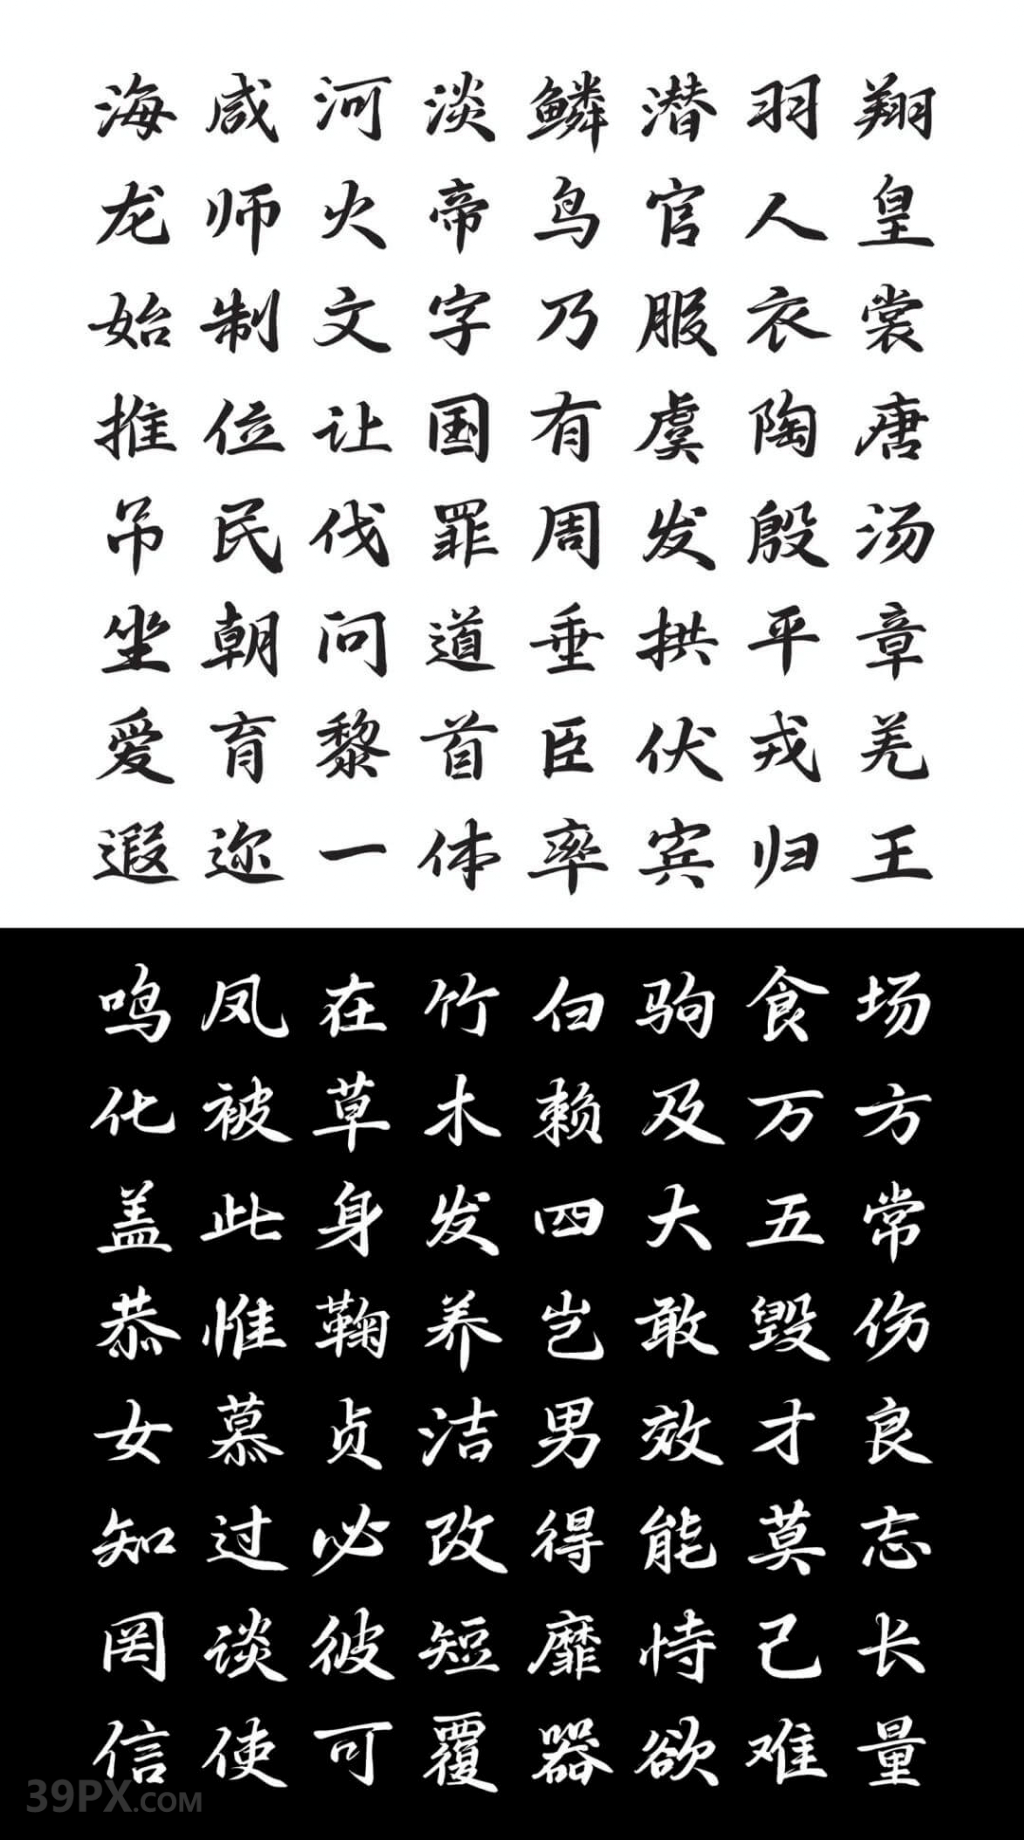 海咸河淡鳞潜羽翔
龙师火帝鸟官人皇
始制文字乃服衣裳
推位让国有虞陶唐
吊民伐罪周发殷汤
坐朝问道垂拱平章
爱育黎首臣伏戎羌
遐迩一体率宾归王
鸣凤在竹白驹食场
化被草木赖及万方
盖此身发四大五常
恭惟鞠养岂敢毁伤
女慕贞洁男效才良
知过必改得能莫忘
罔谈彼短靡恃己长
信使可覆器欲难量
39PX.COM